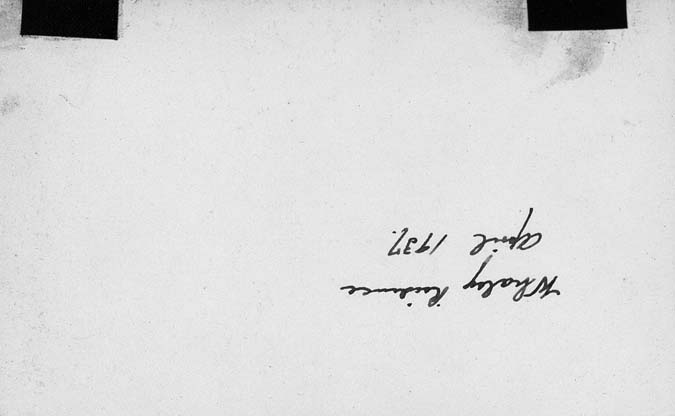 Whaley Residence
April 1937.